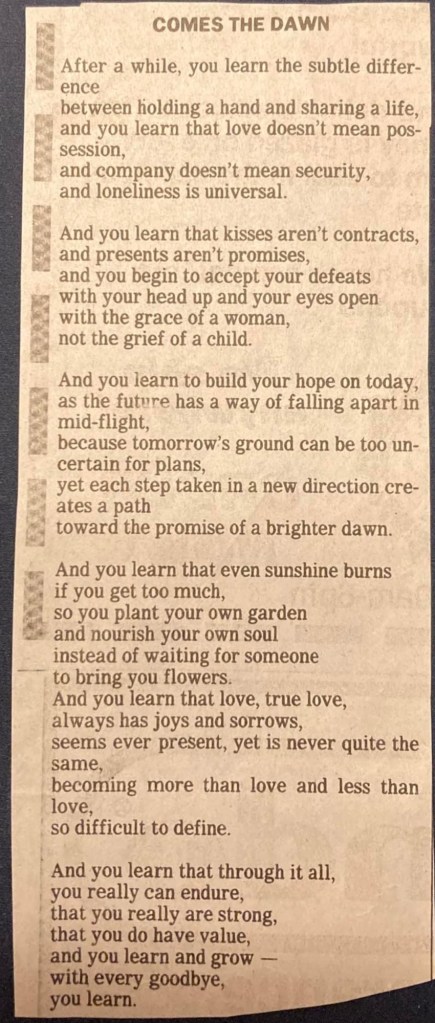 COMES THE DAWN
After a while, you learn the subtle differ-
ence
between holding a hand and sharing a life,
and you learn that love doesn't mean pos-
session,
and company doesn't mean security,
and loneliness is universal.
And you learn that kisses aren't contracts,
and presents aren't promises,
and you begin to accept your defeats
with your head up and your eyes open
with the grace of a woman,
not the grief of a child.
And you learn to build your hope on today,
as the future has a way of falling apart in
mid-flight,
because tomorrow's ground can be too un-
certain for plans,
yet each step taken in a new direction cre-
ates a path
toward the promise of a brighter dawn.
And you learn that even sunshine burns
if you get too much,
so you plant your own garden
and nourish your own soul
instead of waiting for someone
to bring you flowers.
And you learn that love, true love,
always has joys and sorrows,
seems ever present, yet is never quite the
same,
becoming more than love and less than
love,
so difficult to define.
And you learn that through it all,
you really can endure,
that you really are strong,
that you do have value,
and you learn and grow —
with every goodbye,
you learn.